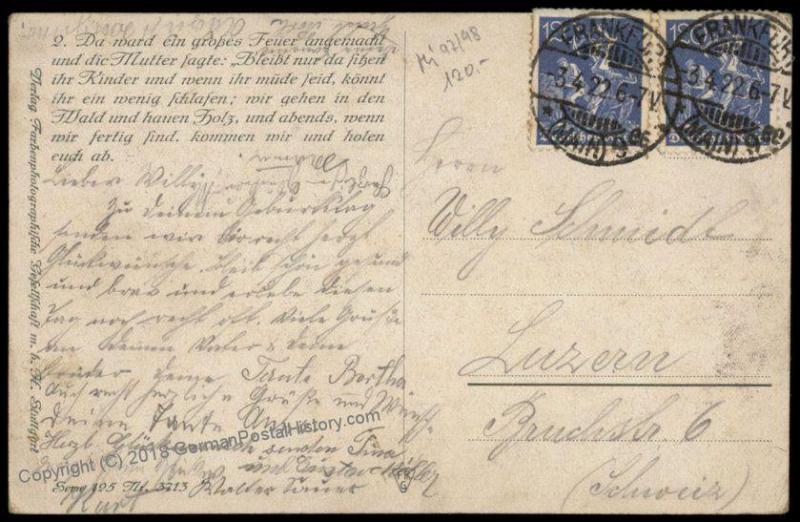 2. Da ward ein großes Feuer angemacht
und die Mutter sagte: „Bleibt nur da sitzen
ihr Kinder und wenn ihr müde seid, könnt
ihr ein wenig schlafen; wir gehen in den
Wald und hauen Holz, und abends, wenn
wir fertig sind, kommen wir und holen
euch ab.
Verlag Farbenphotographische Gesellschaft m. b. H. Stuttgart
Mi 97/98
120.-
FRANKFURT
-3.4.22.6-7V.
(MAIN) 9
FRANKFURT
-3.4.22.6-7V.
(MAIN) 9
Lieber Willy!
Zu Deinem Geburtstag
senden wir Dir recht herzl
Glückwünsche. Bleib schön gesund
und brav und erlebe diesen
Tag noch recht oft. Viele Grüße
an Deinen Vater & Deine
Brüder Tante Bertha
Auch recht herzliche Grüße und
Deine Tante Anna
Herzl. Glückwunsch senden Tina
und
Walter Sauer
Kurt
Serie 195 Nr. 3713
Herrn
Willy Schmidt
Luzern
Bruchstr. 6
(Schweiz)
Copyright (C) 2018 GermanPostalHistory.com